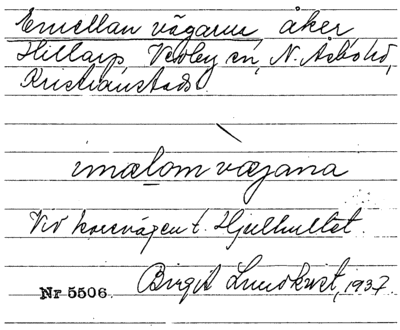 Emellan vägarna åker
Hillarp, Vedby sn, N. Åsbo hd,
Kristianstads
imælom væjana
Vid korsvägen t. Hjulhultet.
Nr 5506. Birgit Lundkvist, 1937